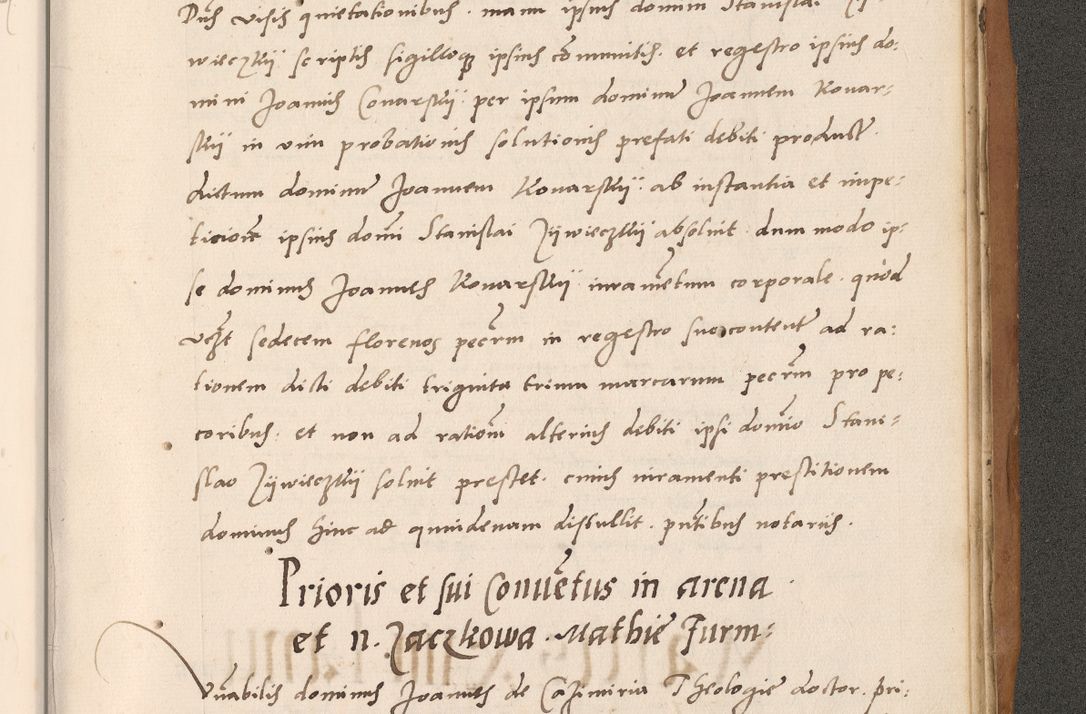 Dns visis quietationibus · manu ipsius domini Stanislai
wieczkij scriptis sigilloqz ipsius cōmunitis · et regestro ipsius do:
mini Joannis Conarskij · per ipsum dominū Joannem Konar=
skij in vim probationis solutionis prefati debiti product̄ ·
dictum dominū Joannem Konarskij · ab instantia et impe:
ticione ipsius domi Stanislai Zijwieczkij absolvit · dum modo ip:
se dominus Joannes Konarskij iuramētum corporale · quod
vcꝫt sedecem florenos pecūm in regestro suo content̄ ad ra:
tionem dicti debiti triginta trium marcarum pecūm pro pe:
coribus · et non ad rationē alterius debiti ipsi domīo Stani=
slao Zijwieczkij solvit prestet · cuius iuramenti prestitionem
dominus hinc ad quindenam distullit · pn̄tibus notariis ·
Prioris et sui Convētus in arena ·
et n. Zaczkowa · Mathie Furm:
Vn̄abilis dominus Joannes de Cazimiria Theologie doctor · pri: